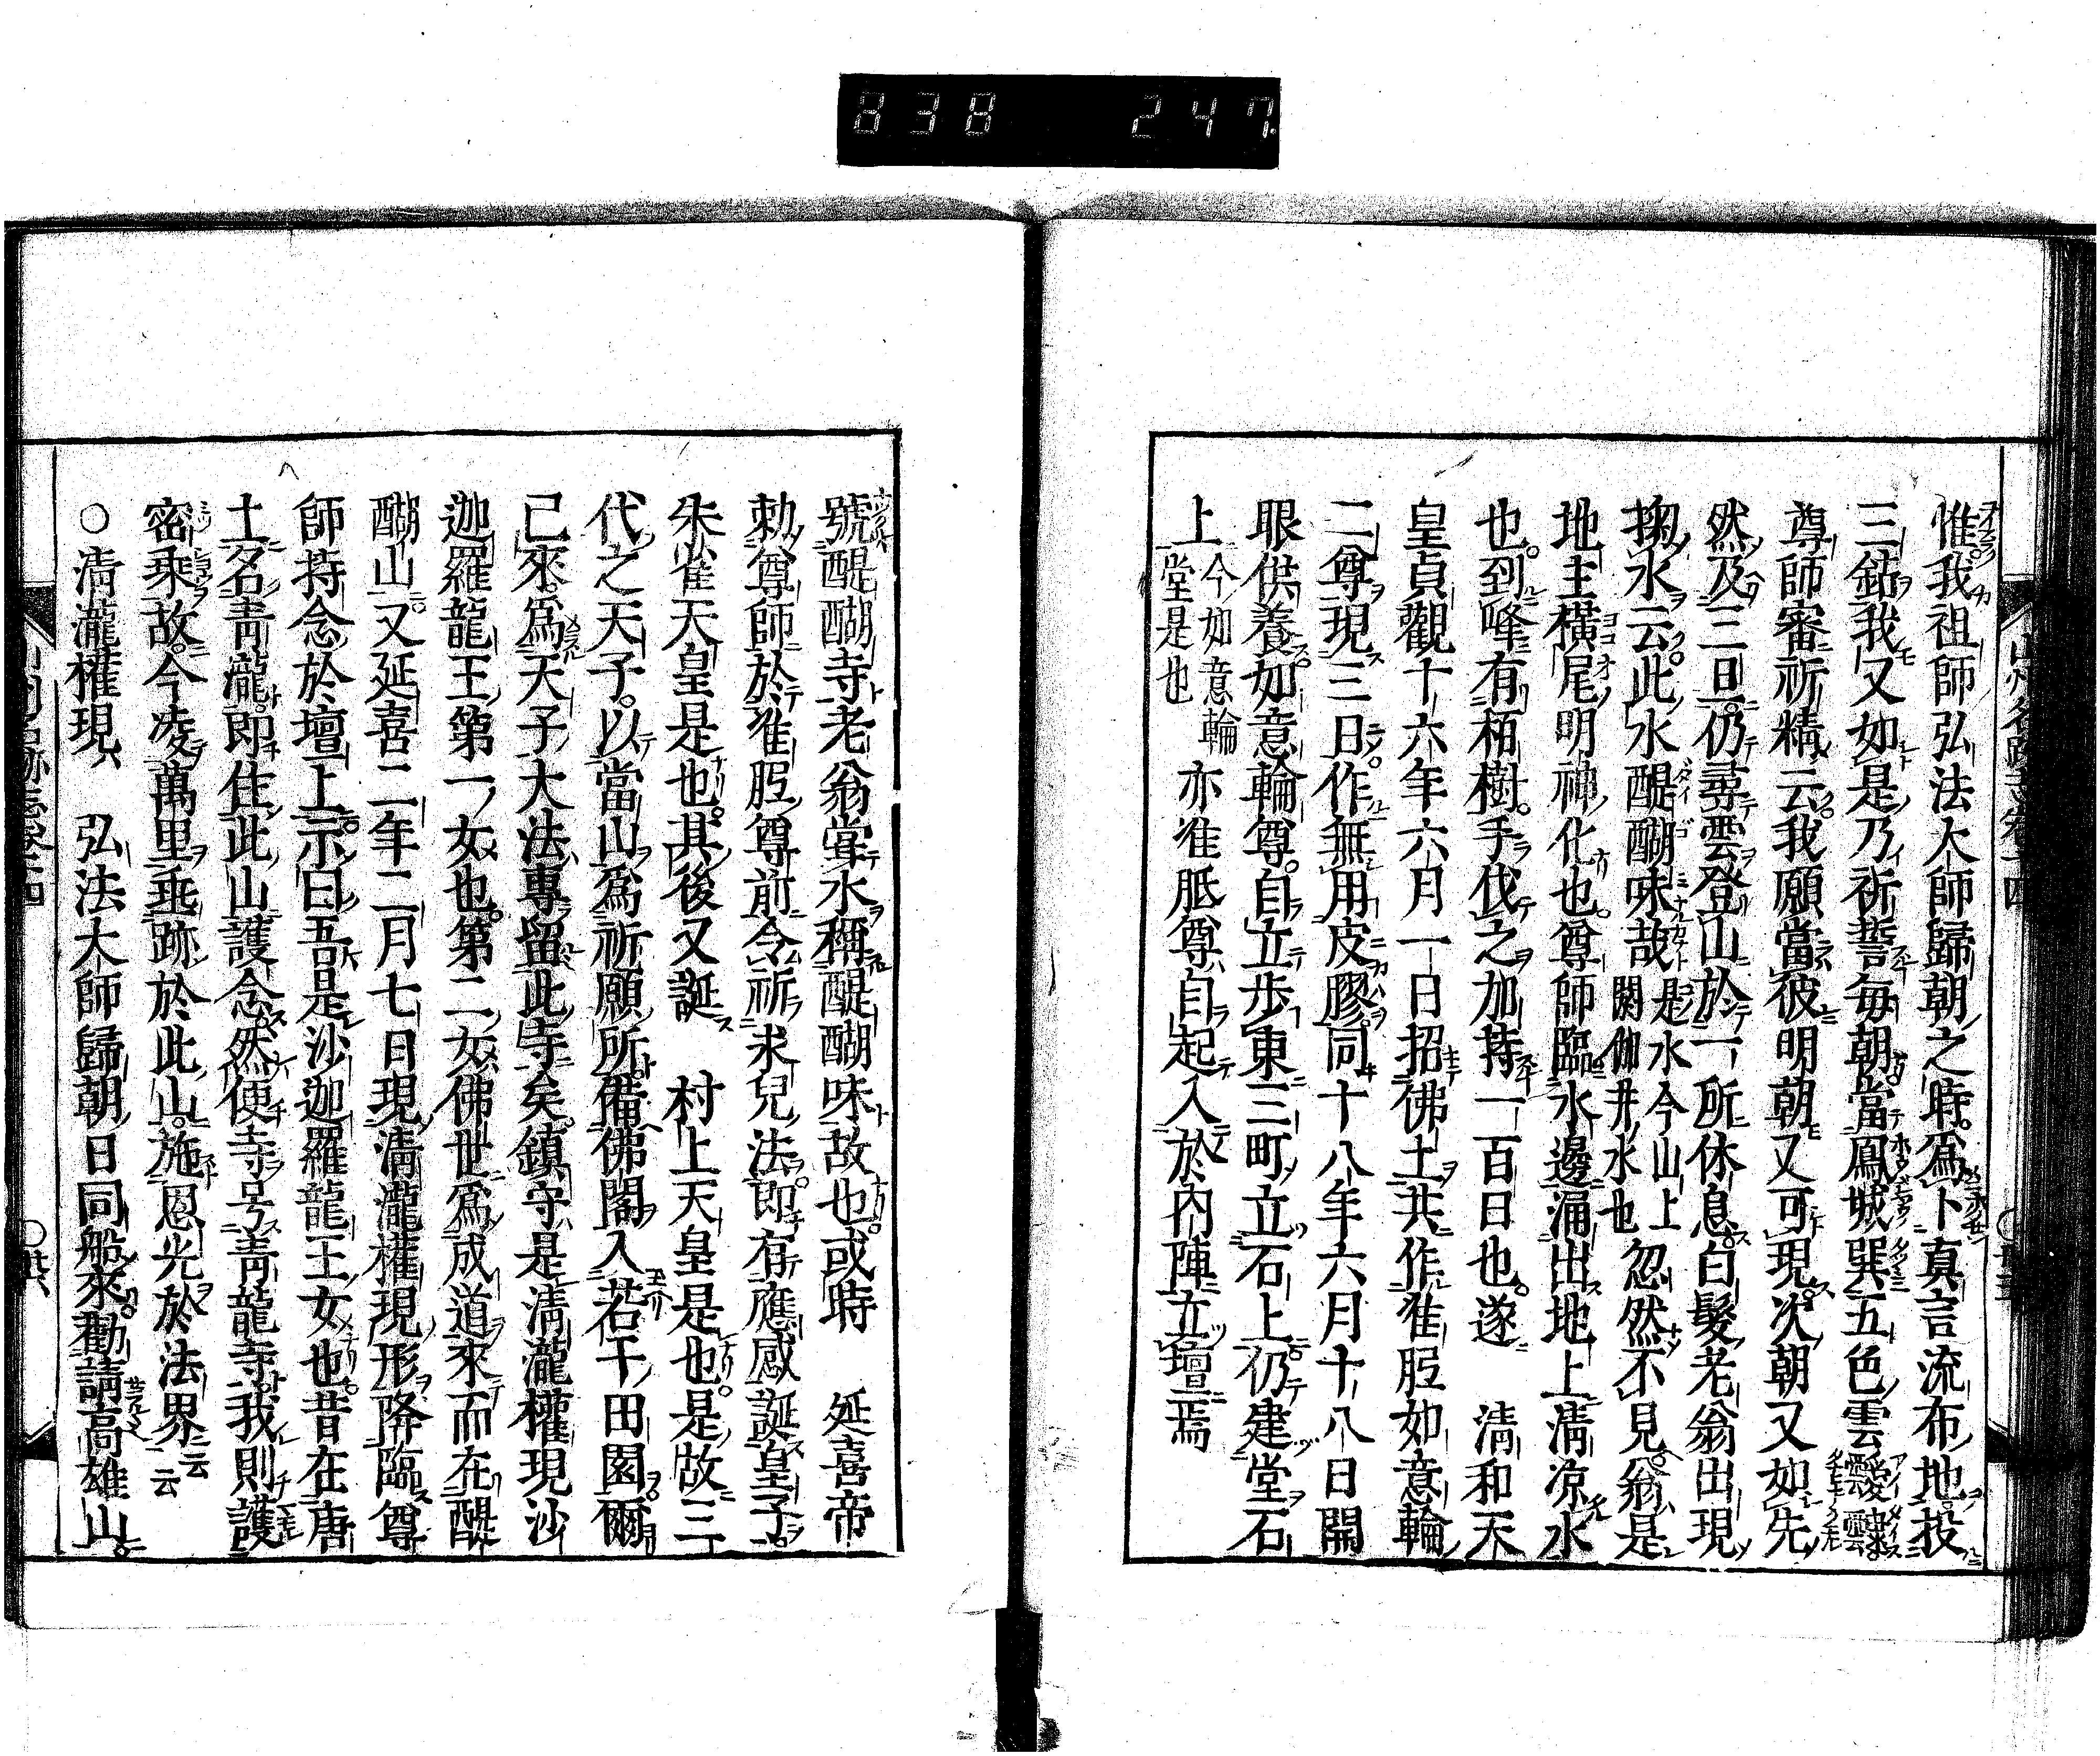 838 247
惟我祖師弘法大師歸朝之時爲卜真言流布地投
三鈷我又如是乃祈誓毎朝當鳳城巽五色雲靉靆
尊師審祈精云我願當彼明朝又可現次朝又如先
然及三日仍尋雲登山於一所休息白髮老翁出現
掬水云此水醍醐味哉是水今山上閼伽井水也忽然不見翁是
地主横尾明神化也尊師臨水邊涌出地上淸凉水
也到峰有栢樹手伐之加持一百日也遂 淸和天
皇貞觀十六年六月一日招佛士共作准胝如意輪
二尊現三日作無用皮膠同十八年六月十八日開
眼供養如意輪尊自立歩東三町立石上仍建堂石
上今如意輪堂是也亦准胝尊自起入於内陣立壇焉
號醍醐寺老翁甞水稱醍醐味故也或時 延喜帝
勅尊師於准胝尊前令祈求兒法即有應感誕皇子
朱雀天皇是也其後又誕 村上天皇是也是故三
代之天子以當山爲祈願所備佛閣入若干田園爾
已來爲天子大法專留此寺矣鎮守是淸瀧權現沙
迦羅龍王第一女也第二女佛世爲成道來而在醍
醐山又延喜二年二月七日現淸瀧權現形降臨尊
師持念於壇上示曰吾是沙迦羅龍王女也昔在唐
土名靑瀧即住此山護念然便寺号靑龍寺我則護
密乘故今凌萬里垂跡於此山施恩光於法界云云
○淸瀧權現 弘法大師歸朝日同船來勸請高雄山